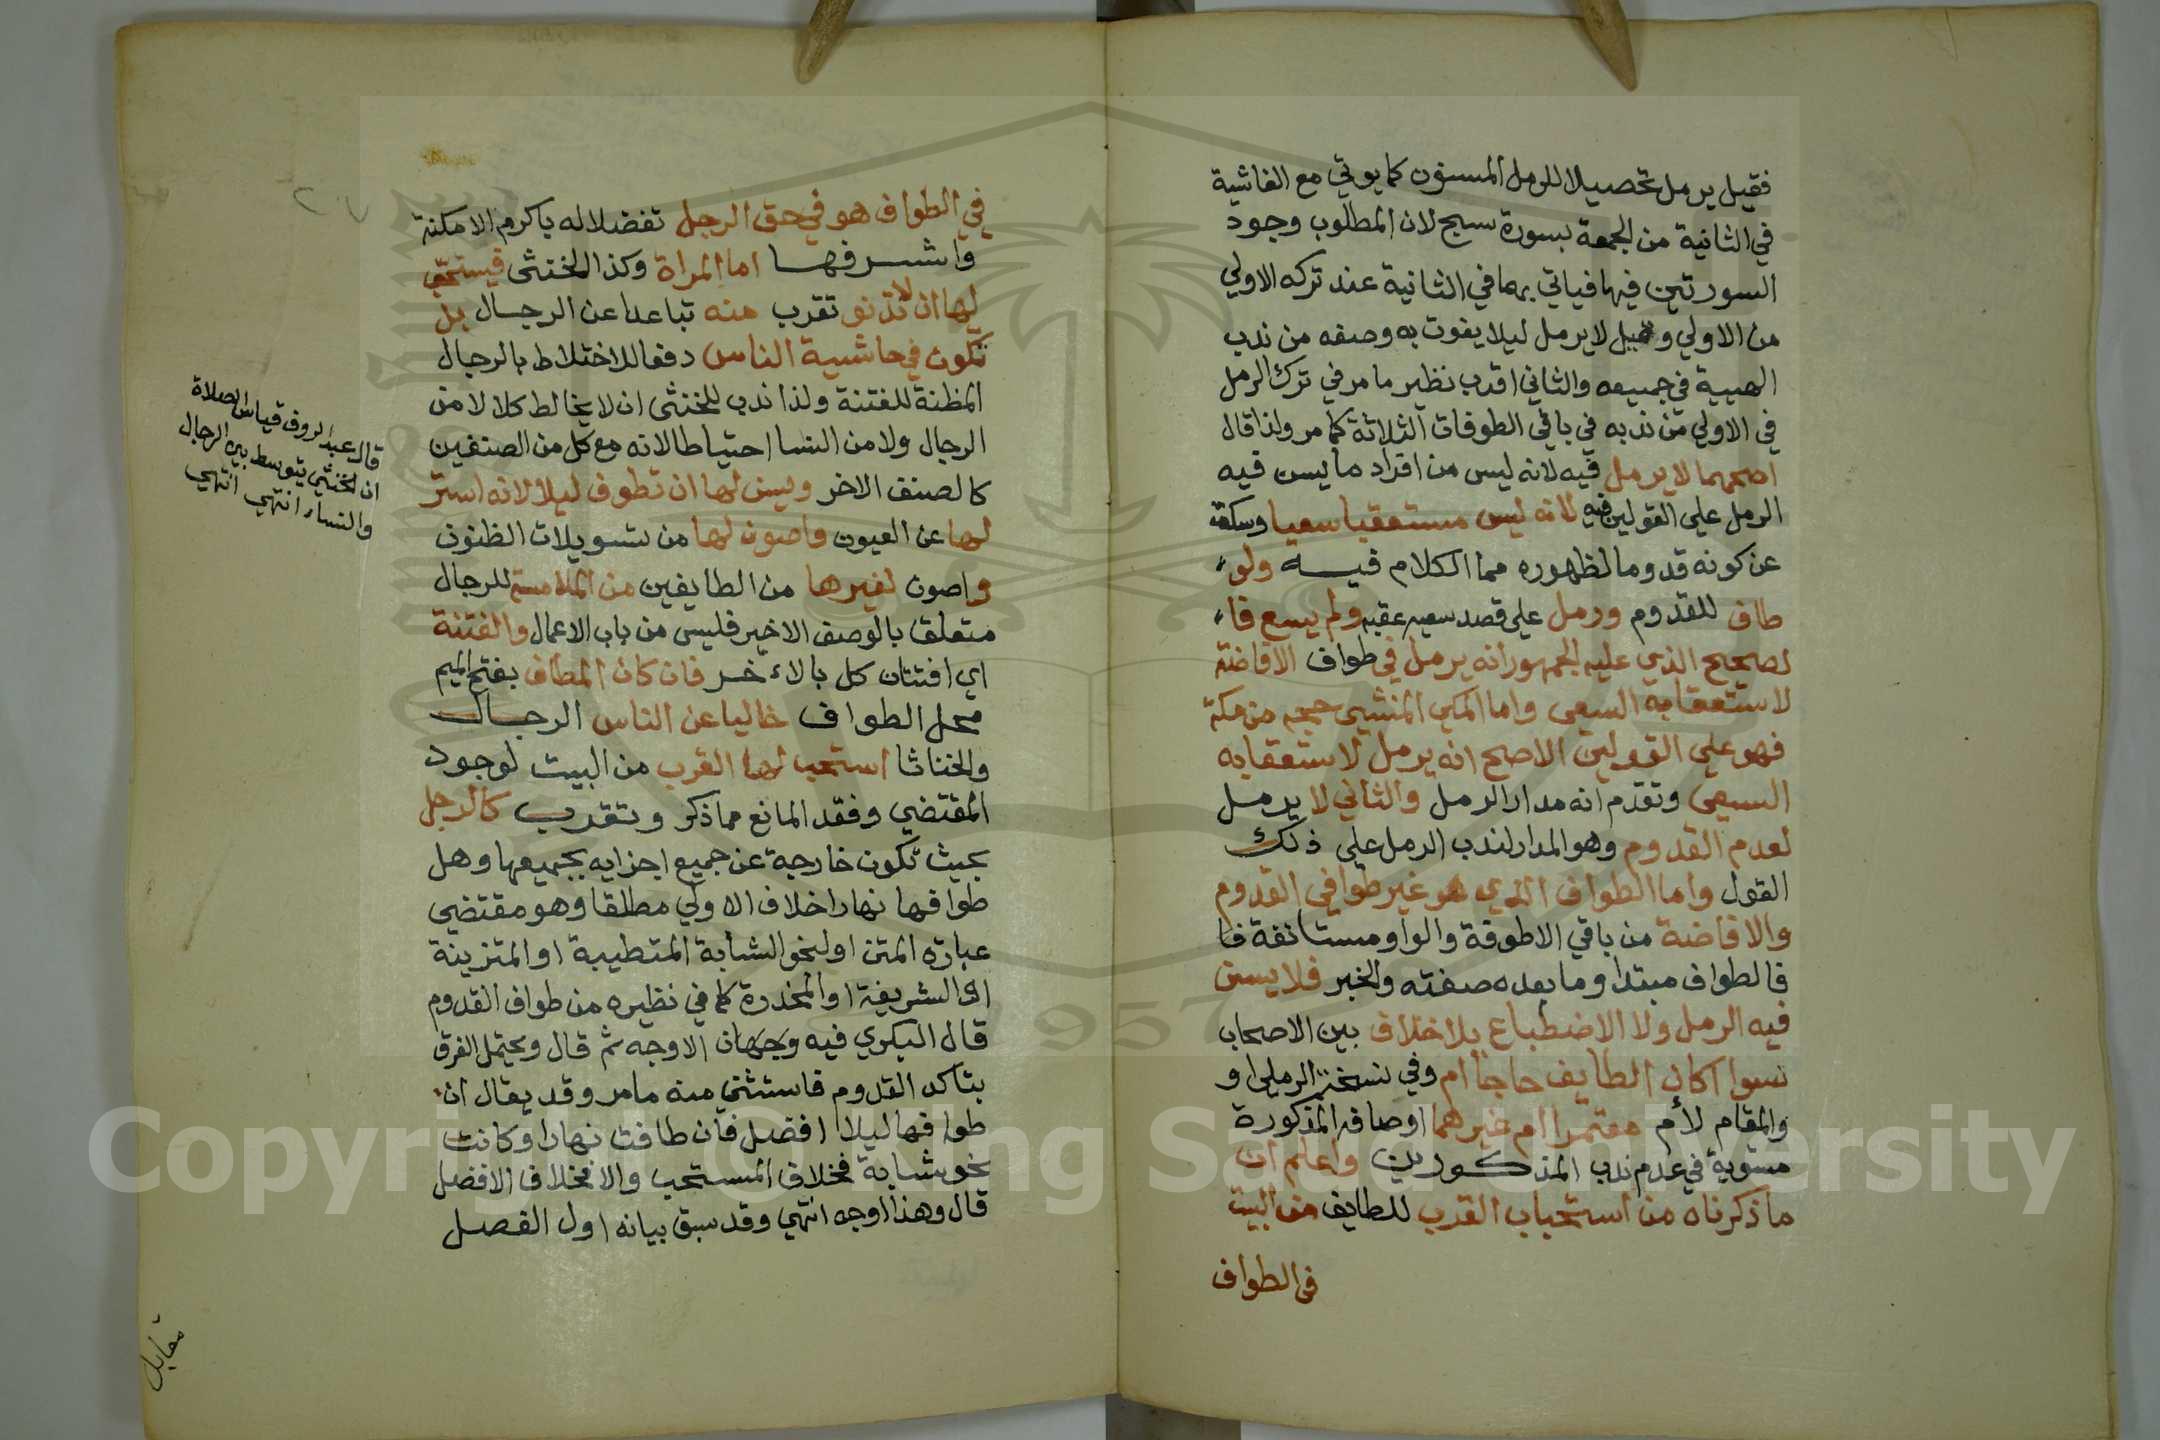 فقيل يرمل تحصيلا للرمل المسنون كما يوتي مع الغاشية
في الثانية من الجمعة بسورة سبح لان المطلوب وجود
السورتين فيها فياتي بهما في الثانية عند تركه الاولي
من الاولي وقيل لا يرمل ليلا يفوت به وصفه من ندب
الهيية في جميعه والثاني اقرب نظير ما مر في ترك الرمل
في الاولي من ندبه في باقي الطوفات الثلاثة كما مر ولذا قال
اصحهما لا يرمل فيه لانه ليس من افراد ما يسن فيه
الرمل علي القولين فيه لانه ليس مستعقبا سعيا وسكت
عن كونه قدوما لظهوره مما الكلام فيه ولو
طاف للقدوم ورمل علي قصد سعيه عقبه ولم يسع فا
لصحيح الذي عليه الجمهور انه يرمل في طواف الافاضة
لاستعقابه السعي واما المكي المنشي حجه من مكة
فهو علي القولين الاصح انه يرمل لاستعقابه
السعي وتقدم انه مدار الرمل والثاني لا يرمل
لعدم القدوم وهو المدار لندب الرمل علي ذلك
القول واما الطواف الذي هو غير طوافي القدوم
والافاضة من باقي الاطوفة والواو مستانفة فا
فالطواف مبتدا وما بعده صفته والخبر فلا يسن
فيه الرمل ولا الاضطباع بلا خلاف بين الاصحاب
سوا اكان الطايف حاجا ام وفي نسخة الرملي او
والمقام لأم معتمرا ام غيرهما اوصافه المذكورة
مستوية في عدم ندب المذكورين واعلم ان
ما ذكرناه من استحباب القرب للطايف من البيت
في الطواف
في الطواف هو في حق الرجل تفضلا له باكرم الامكنة
واشرفها اما المراة وكذا الخنثى فيستحب
لها ان لا تدنو تقرب منه تباعدا عن الرجال بل
تكون في حاشية الناس دفعا للاختلاط بالرجال
المظنة للفتنة ولذا ندب للخنثى ان لا يخالط كلا لا من
الرجال ولا من النسا احتياطا لانه مع كل من الصنفين
كالصنف الاخر ويسن لها ان تطوف ليلا لانه استر
لها عن العيون واصون لها من تسويلات الظنون
واصون لغيرها من الطايفين من الملامسة للرجال
متعلق بالوصف الاخير فليس من باب الاعمال والفتنة
اي افتتان كل بالاءخر فان كان المطاف بفتح الميم
محل الطواف خاليا عن الناس الرجال
والخناثا استحب لها القرب من البيت لوجود
المقتضي وفقد المانع مما ذكر وتقرب كالرجل
بحيث تكون خارجة عن جميع اجزايه بجميعها وهل
طوافها نهارا خلاف الاولي مطلقا وهو مقتضي
عبارة المتن او لنحو الشابة المتطيبة او المتزينة
او الشريفة او المخدرة كما في نظيره من طواف القدوم
قال البكري فيه وجهان الاوجه ثم قال ويحتمل الفرق
بتاكد القدوم فاستثنى منه ما مر وقد يقال ان
طوافها ليلا افضل فان طافت نهارا وكانت
نحو شابة فخلاف المستحب والا فخلاف الافضل
قال وهذا اوجه انتهي وقد سبق بيانه اول الفصل
قال عبد الروف قياس الصلاة
ان الخنثي يتوسط بين الرجال
والنساء انتهي انتهي
مقابل
Copyright © King Saud University
1957